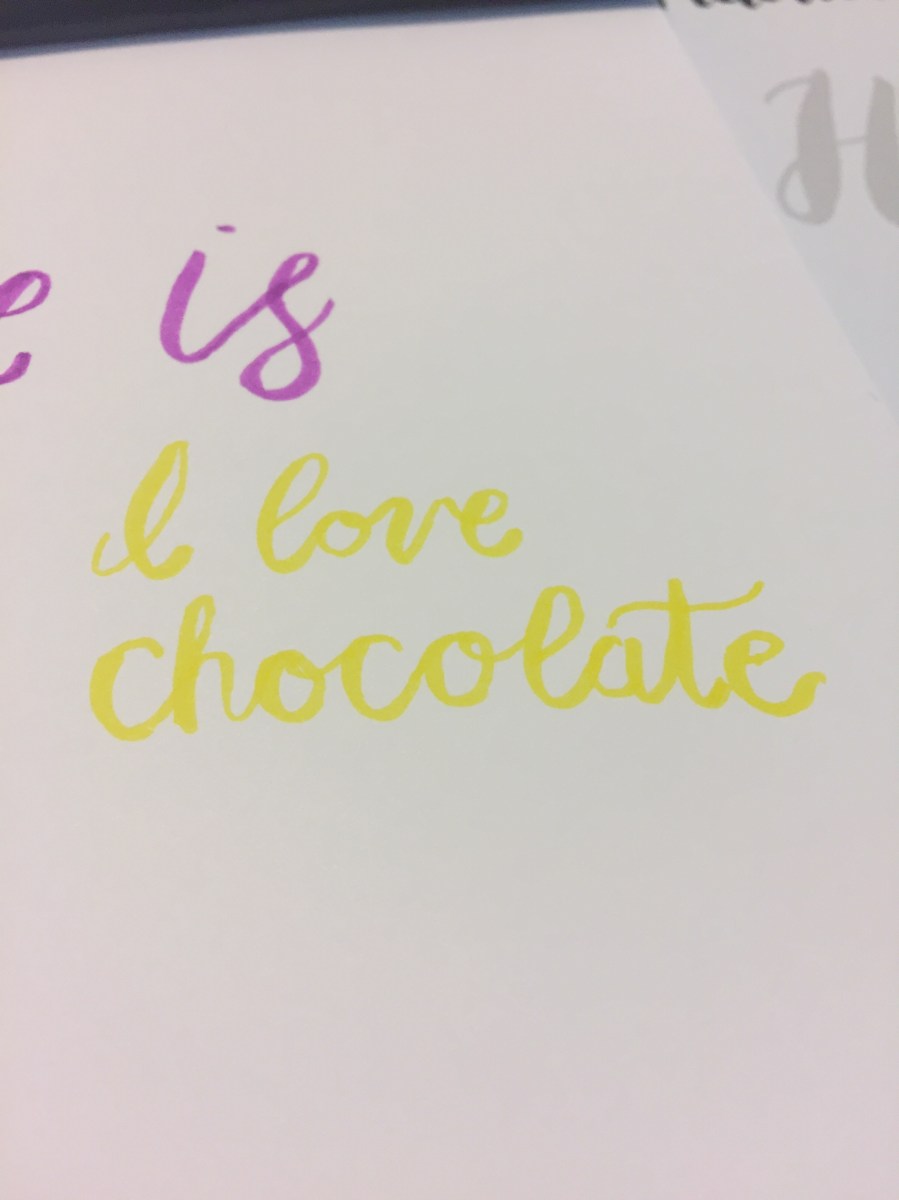 is
I love
chocolate